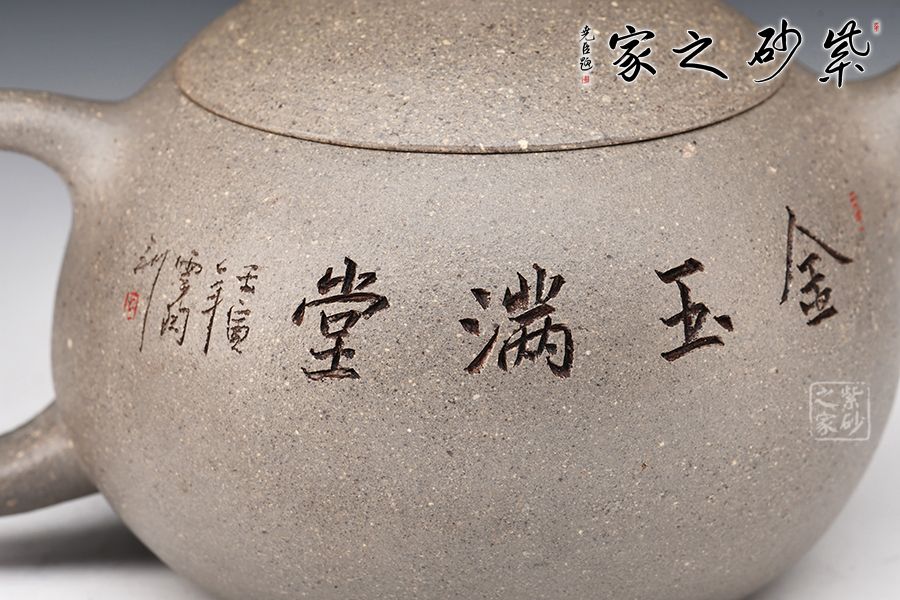 紫砂之家
尧臣题
金玉满堂
壬寅
年
紫砂之家